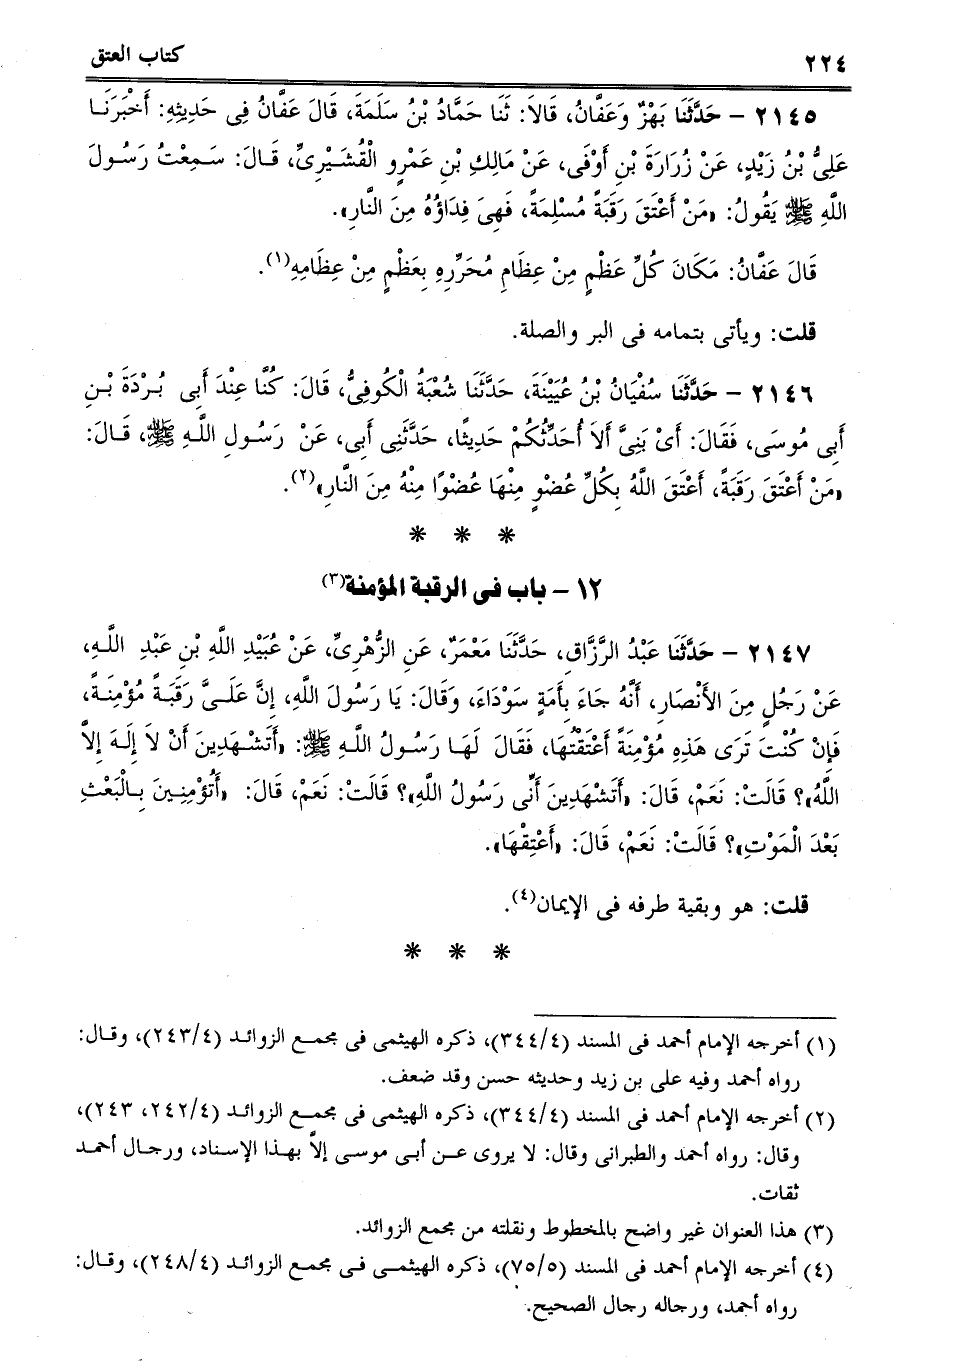 ٢٢٤ كتاب العتق
٢١٤٥ – حَدَّثَنَا بَهْزٌ وَعَفَّانُ، قَالاَ: ثَنَا حَمَّادُ بْنُ سَلَمَةَ، قَالَ عَفَّانُ فِى حَدِيثِهِ: أَخْبَرَنَا
عَلِىُّ بْنُ زَيْدٍ، عَنْ زُرَارَةَ بْنِ أَوْفَى، عَنْ مَالِكِ بْنِ عَمْرٍو الْقُشَيْرِىِّ، قَالَ: سَمِعْتُ رَسُولَ
اللَّهِ ﷺ يَقُولُ: «مَنْ أَعْتَقَ رَقَبَةً مُسْلِمَةً، فَهِىَ فِدَاؤُهُ مِنَ النَّارِ».
قَالَ عَفَّانُ: مَكَانَ كُلِّ عَظْمٍ مِنْ عِظَامِ مُحَرِّرِهِ بِعَظْمٍ مِنْ عِظَامِهِ(١).
قلت: ويأتى بتمامه فى البر والصلة.
٢١٤٦ – حَدَّثَنَا سُفْيَانُ بْنُ عُيَيْنَةَ، حَدَّثَنَا شُعْبَةُ الْكُوفِىُّ، قَالَ: كُنَّا عِنْدَ أَبِى بُرْدَةَ بْنِ
أَبِى مُوسَى، فَقَالَ: أَىْ بَنِىَّ أَلاَ أُحَدِّثُكُمْ حَدِيثًا، حَدَّثَنِى أَبِى، عَنْ رَسُولِ اللَّهِ ﷺ، قَالَ:
«مَنْ أَعْتَقَ رَقَبَةً، أَعْتَقَ اللَّهُ بِكُلِّ عُضْوٍ مِنْهَا عُضْوًا مِنْهُ مِنَ النَّارِ»(٢).
* * *
١٢ – باب فى الرقبة المؤمنة(٣)
٢١٤٧ – حَدَّثَنَا عَبْدُ الرَّزَّاقِ، حَدَّثَنَا مَعْمَرٌ، عَنِ الزُّهْرِىِّ، عَنْ عُبَيْدِ اللَّهِ بْنِ عَبْدِ اللَّهِ،
عَنْ رَجُلٍ مِنَ الأَنْصَارِ، أَنَّهُ جَاءَ بِأَمَةٍ سَوْدَاءَ، وَقَالَ: يَا رَسُولَ اللَّهِ، إِنَّ عَلَىَّ رَقَبَةً مُؤْمِنَةً،
فَإِنْ كُنْتَ تَرَى هَذِهِ مُؤْمِنَةً أَعْتَقْتُهَا، فَقَالَ لَهَا رَسُولُ اللَّهِ ﷺ: «أَتَشْهَدِينَ أَنْ لاَ إِلَهَ إِلاَّ
اللَّهُ»؟ قَالَتْ: نَعَمْ، قَالَ: «أَتَشْهَدِينَ أَنِّى رَسُولُ اللَّهِ»؟ قَالَتْ: نَعَمْ، قَالَ: «أَتُؤْمِنِينَ بِالْبَعْثِ
بَعْدَ الْمَوْتِ»؟ قَالَتْ: نَعَمْ، قَالَ: «أَعْتِقْهَا».
قلت: هو وبقية طرفه فى الإيمان(٤).
* * *
(١) أخرجه الإمام أحمد فى المسند (٣٤٤/٤)، ذكره الهيثمى فى مجمع الزوائد (٢٤٣/٤)، وقال:
رواه أحمد وفيه على بن زيد وحديثه حسن وقد ضعف.
(٢) أخرجه الإمام أحمد فى المسند (٣٤٤/٤)، ذكره الهيثمى فى مجمع الزوائد (٢٤٢/٤، ٢٤٣)،
وقال: رواه أحمد والطبرانى وقال: لا يروى عن أبى موسى إلاّ بهذا الإسناد، ورجال أحمد
ثقات.
(٣) هذا العنوان غير واضح بالمخطوط ونقلته من مجمع الزوائد.
(٤) أخرجه الإمام أحمد فى المسند (٧٥/٥)، ذكره الهيثمى فى مجمع الزوائد (٢٤٨/٤)، وقال:
رواه أحمد، ورجاله رجال الصحيح.